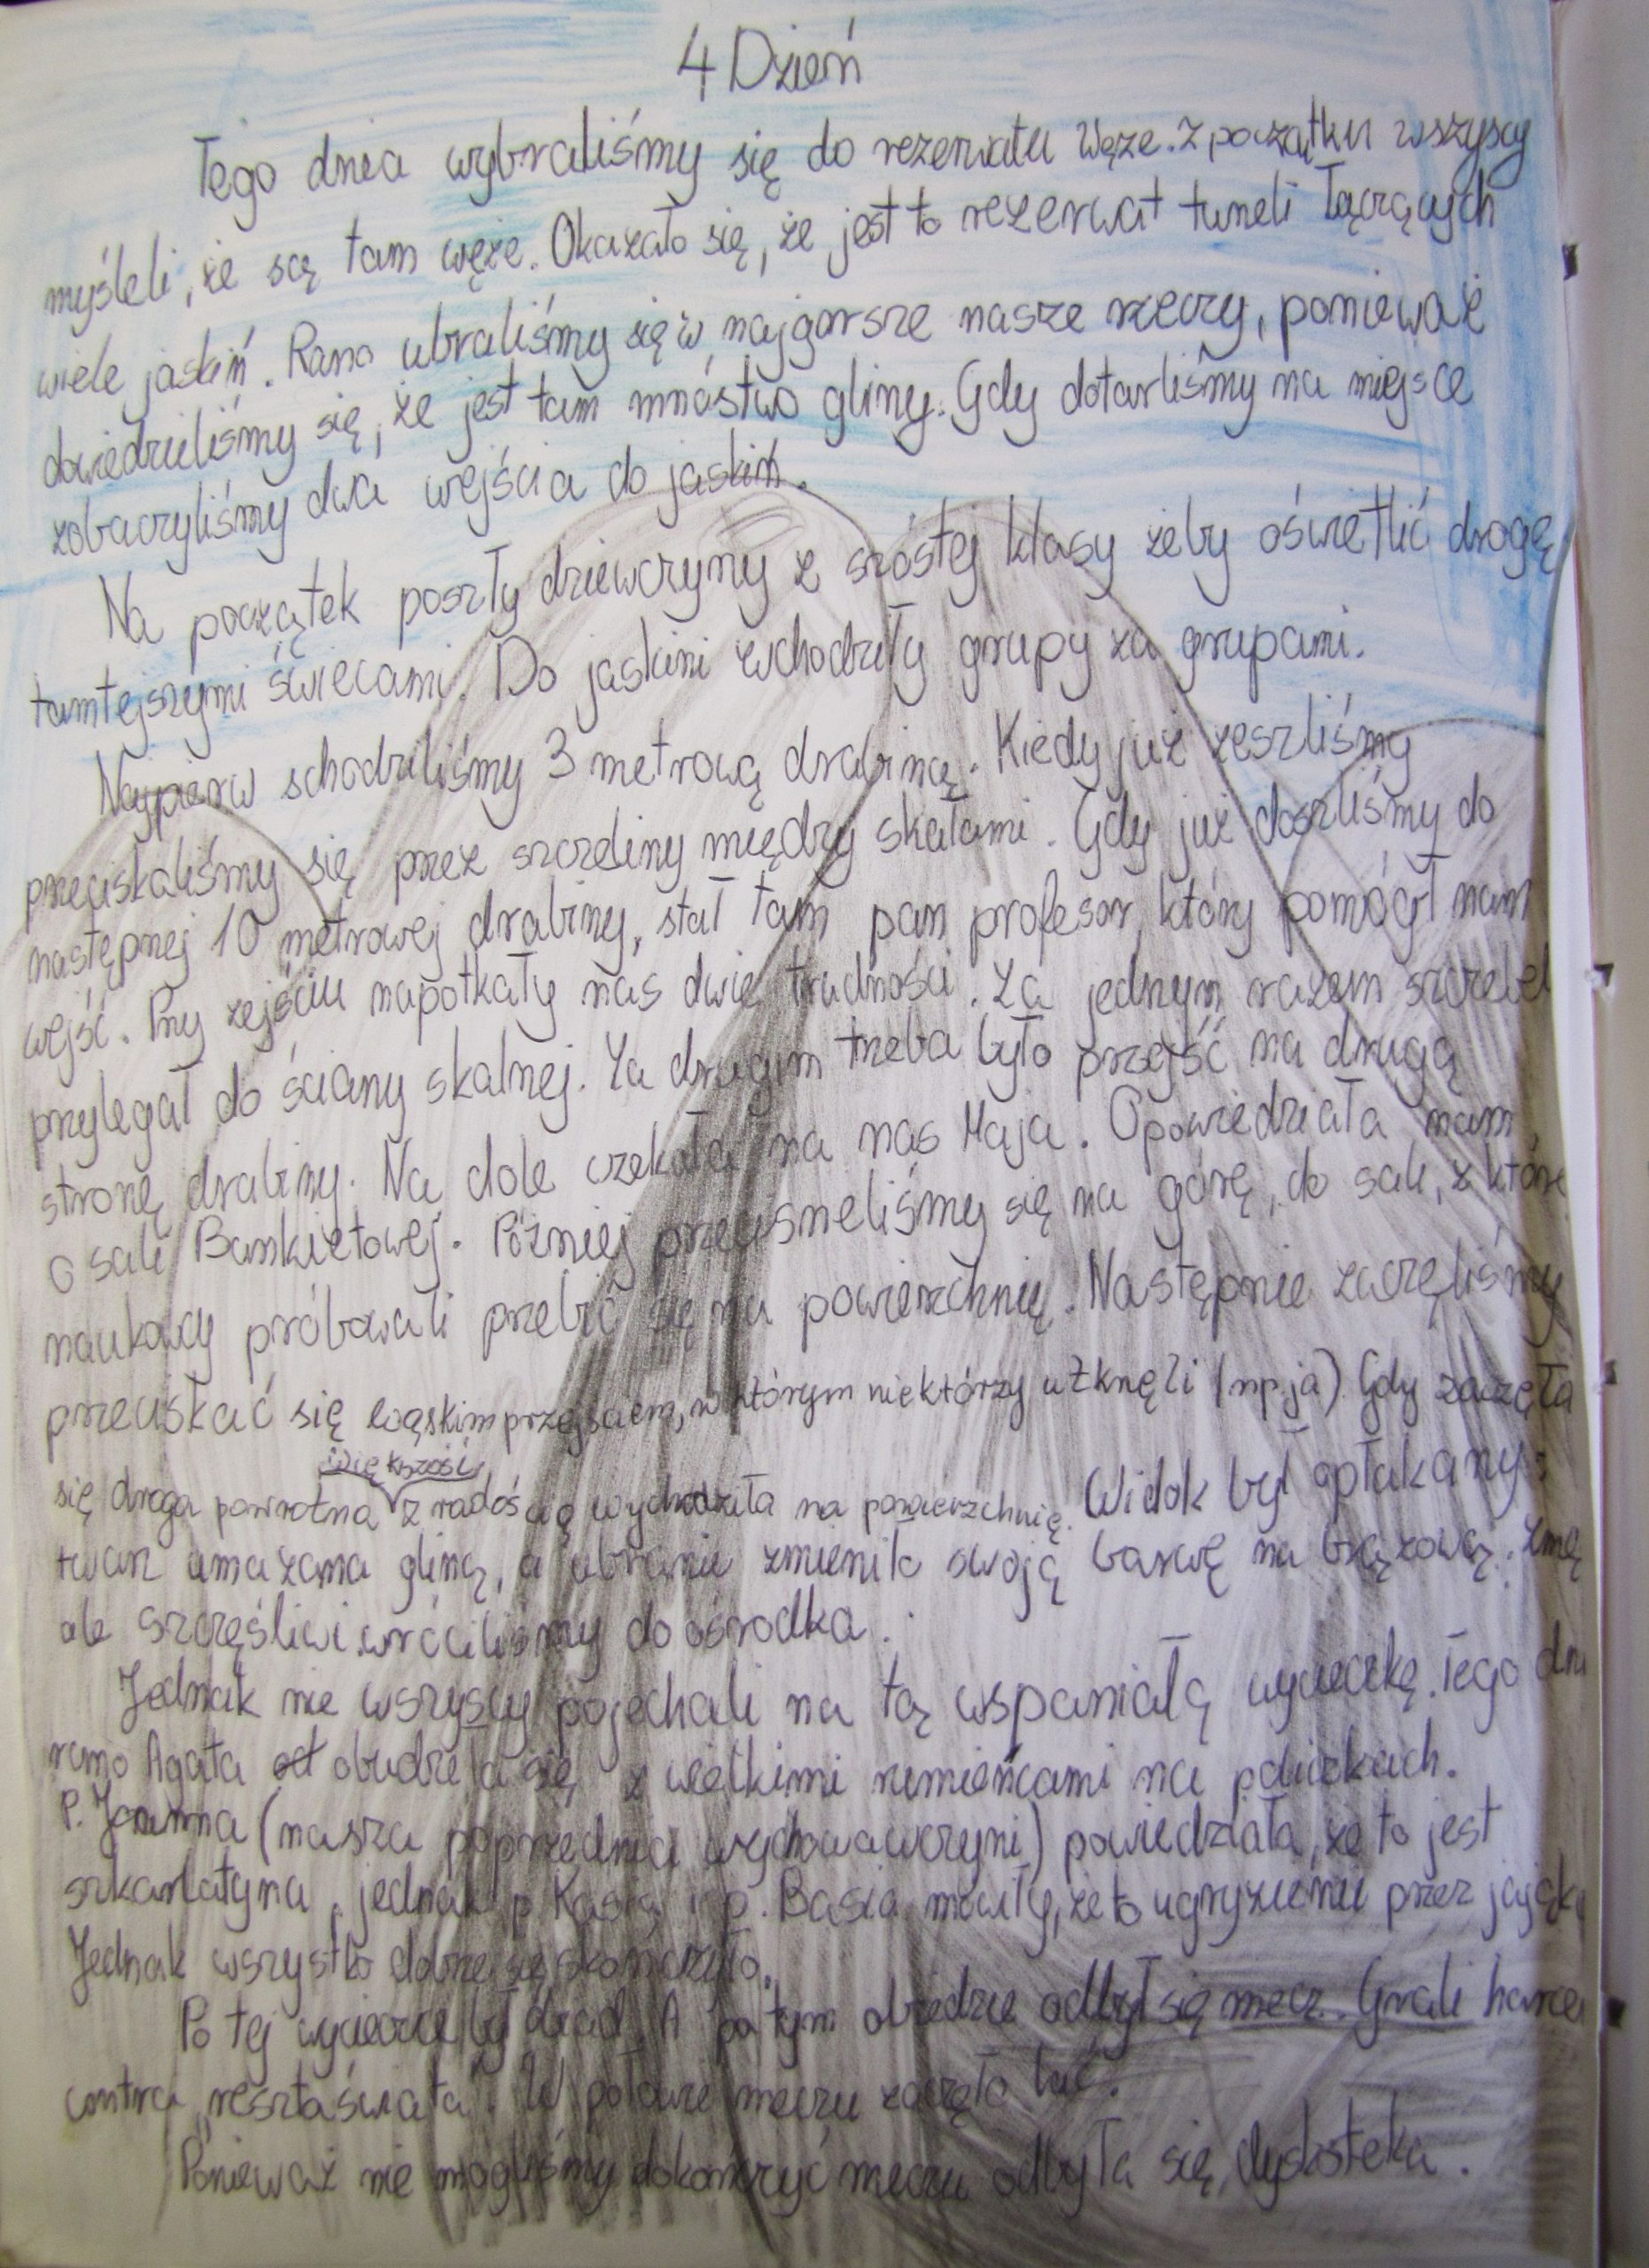 4 Dzień
Tego dnia wybraliśmy się do rezerwatu Węże. Z początku wszyscy
myśleli, że są tam węże. Okazało się, że jest to rezerwat tuneli łączących
wiele jaskiń. Rano ubraliśmy się w najgorsze nasze rzeczy, ponieważ
dowiedzieliśmy się, że jest tam mnóstwo gliny. Gdy dotarliśmy na miejsce
zobaczyliśmy dwa wejścia do jaskiń.
Na początek poszły dziewczyny z szóstej klasy żeby oświetlić drogę
tamtejszymi świecami. Do jaskini wchodziły grupy za grupami.
Najpierw schodziliśmy 3 metrową drabiną. Kiedy już zeszliśmy
przeciskaliśmy się przez szczeliny między skałami. Gdy już doszliśmy do
następnej 10 metrowej drabiny, stał tam pan profesor, który pomógł nam
wejść. Przy zejściu napotkały nas dwie trudności. Za jednym razem szczebel
przylegał do ściany skalnej. Za drugim trzeba było przejść na drugą
stronę drabiny. Na dole czekała na nas Maja. Opowiedziała nam
o sali Bankietowej. Później przecisneliśmy się na górę, do sali, z które
naukowcy próbowali przebić się na powierzchnię. Następnie zaczęliśmy
przeciskać się wąskim przejściem, w którym niektórzy utknęli (np. ja). Gdy zaczęła
się droga powrotna większość z radością wychodziła na powierzchnię. Widok był opłakany:
twarz umazana gliną, a ubranie zmieniło swoją barwę na brązową.
ale szczęśliwi wróciliśmy do ośrodka.
Jednak nie wszyscy pojechali na tą wspaniałą wycieczkę. Tego dni
rano Agata obudziła się z wielkimi rumieńcami na policzkach.
P. Joanna (nasza poprzednia wychowawczyni) powiedziała, że to jest
szkarlatyna, jednak p. Kasia i p. Basia mówiły, że to ugryzienie przez
Jednak wszystko dobrze się skończyło.
Po tej wycieczce był obiad. A po tym obiedzie odbył się mecz. Grali harce
contra "reszta świata". W połowie meczu zaczęło lać.
Ponieważ nie mogliśmy dokończyć meczu odbyła się dyskoteka.